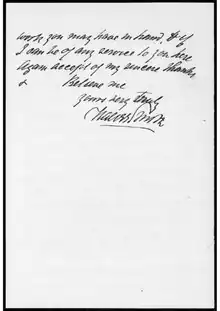 work you may have in hand, & if
I can be of any service to you here
Again accept of my sincere thanks
& Believe me
Yours very truly